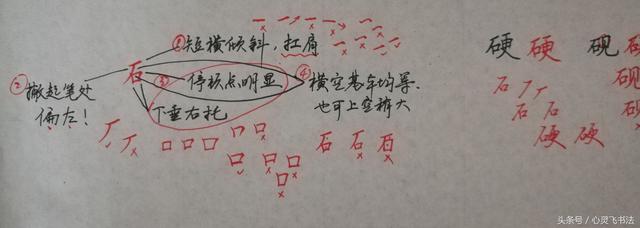 ①短横倾斜，扛肩
②撇起笔处
偏左！
石
③停顿点明显
④横空基本均等．
也可上空稍大
下垂右托
厂 厂 口 口 口 口 口
口 口 口
口
石 石 石
硬 硬 砚 砚
石 厂 厂
石 石
硬 硬
头条号 / 心灵飞书法